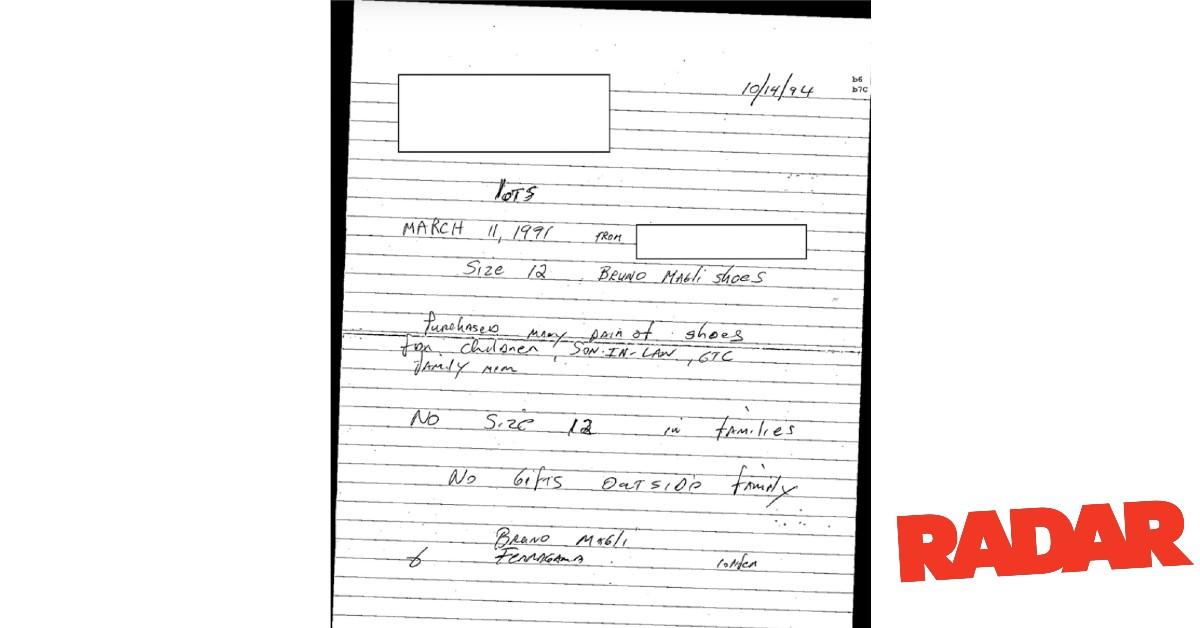 10/14/94
b6
b7C
MARCH 11, 1991 FROM
Size 12 BRUNO MAGli shoes
Purchased many pair of shoes
for children, SON-IN-LAW, ETC
family mem
No Size 12 in families
No Gifts OUTSIDE family
BRUNO MAGli
FERRAGAMA
RADAR